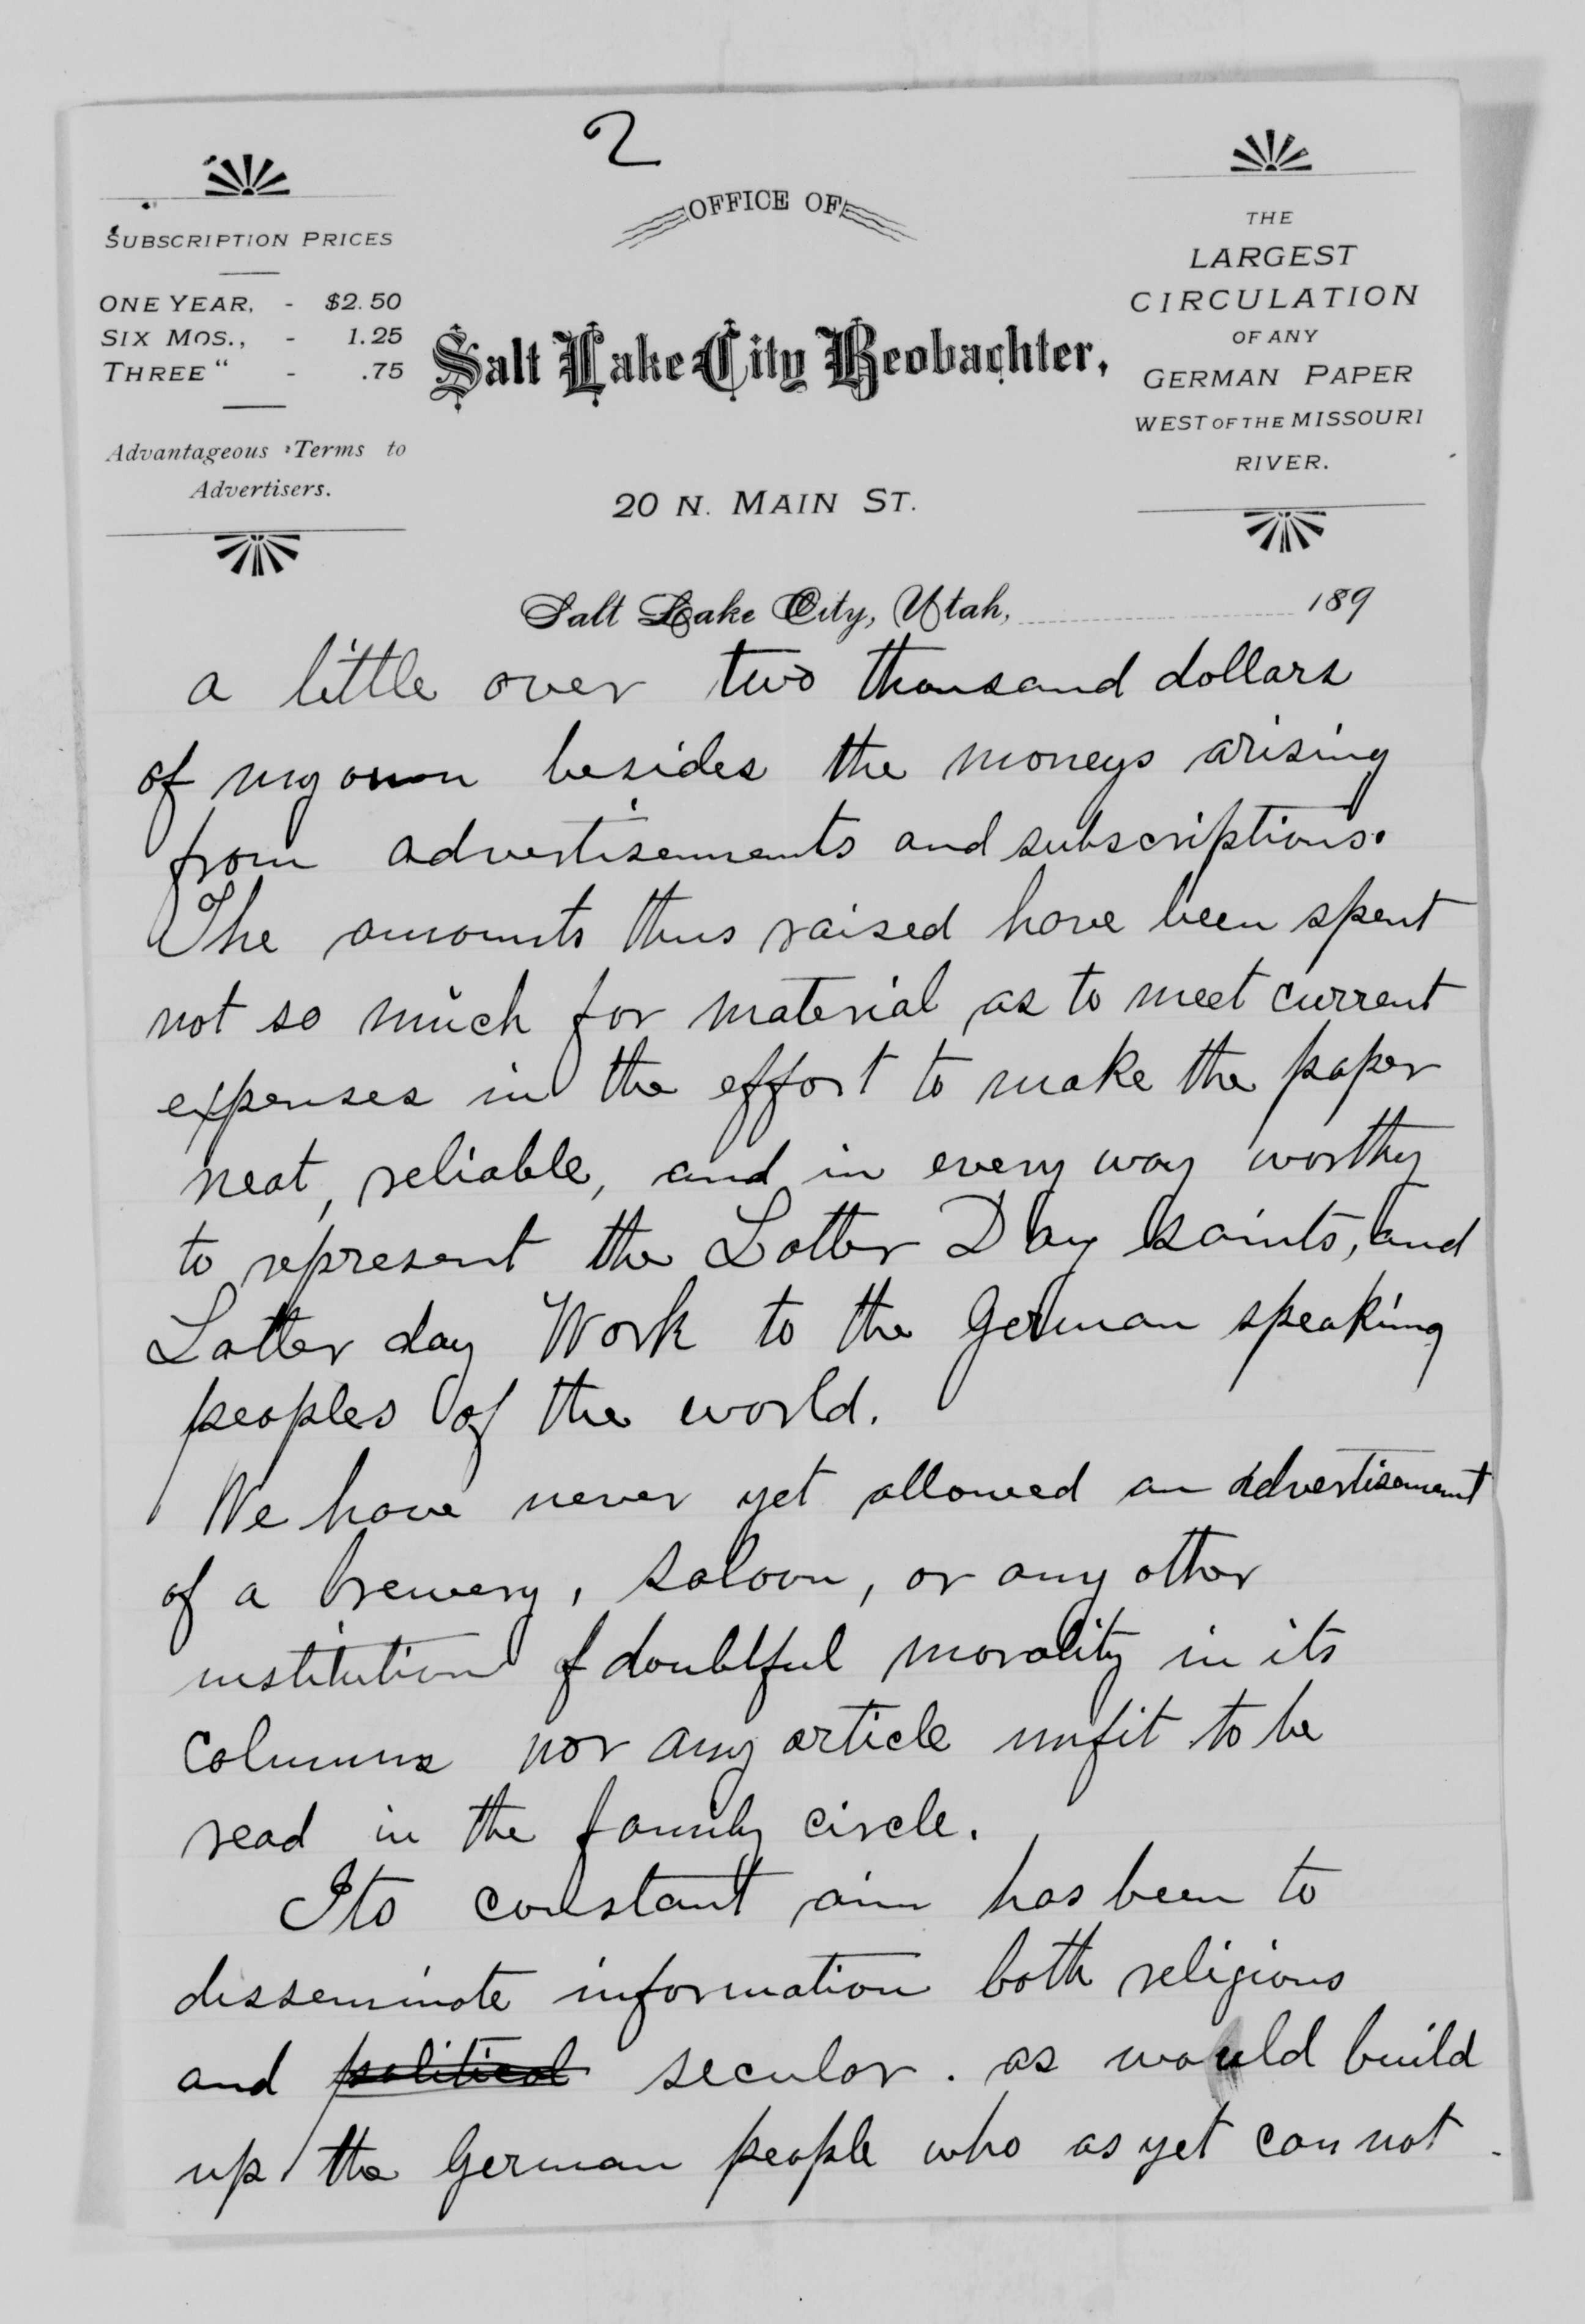 2
SUBSCRIPTION PRICES
ONE YEAR, - $2.50
SIX MOS., - 1.25
THREE " - .75
Advantageous Terms to
Advertisers.
OFFICE OF
Salt Lake City Beobachter,
20 N. MAIN ST.
THE
LARGEST
CIRCULATION
OF ANY
GERMAN PAPER
WEST OF THE MISSOURI
RIVER.
Salt Lake City, Utah, 189
a little over two thousand dollars
of my own besides the moneys arising
from advertisements and subscriptions.
The amounts thus raised have been spent
not so much for material as to meet current
expenses in the effort to make the paper
neat, reliable, and in every way worthy
to represent the Latter Day saints, and
Latter day Work to the German speaking
peoples of the world.
We have never yet allowed an advertisement
of a brewery, saloon, or any other
institution of doubtful morality in its
columns nor any article unfit to be
read in the family circle.
Its constant aim has been to
disseminate information both religious
and political secular. as would build
up the German people who as yet can not